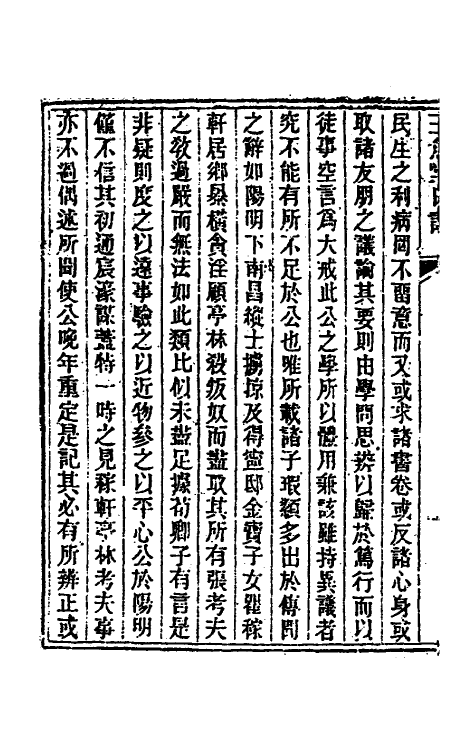 民生之利病罔不畱意而又或求諸書卷或反諸心身或
取諸友朋之議論其要則由學問思辨以歸於篤行而以
徒事空言爲大戒此公之學所以體用兼該雖持異議者
究不能有所不足於公也雖所載諸子瑕纇多出於傳聞
之辭如陽明下南昌縱士擄掠及得寧邸金寶子女瞿稼
軒居鄉暴橫貪淫顧亭林殺叛奴而盡取其所有張考夫
之敎過嚴而無法如此類比似未盡足據荀卿子有言是
非疑則度之以遠事驗之以近物參之以平心公於陽明
僞不信其初通宸濠謀蓋特一時之見稼軒亭林考夫事
亦不過偶述所聞使公晚年重定是記其必有所辨正或